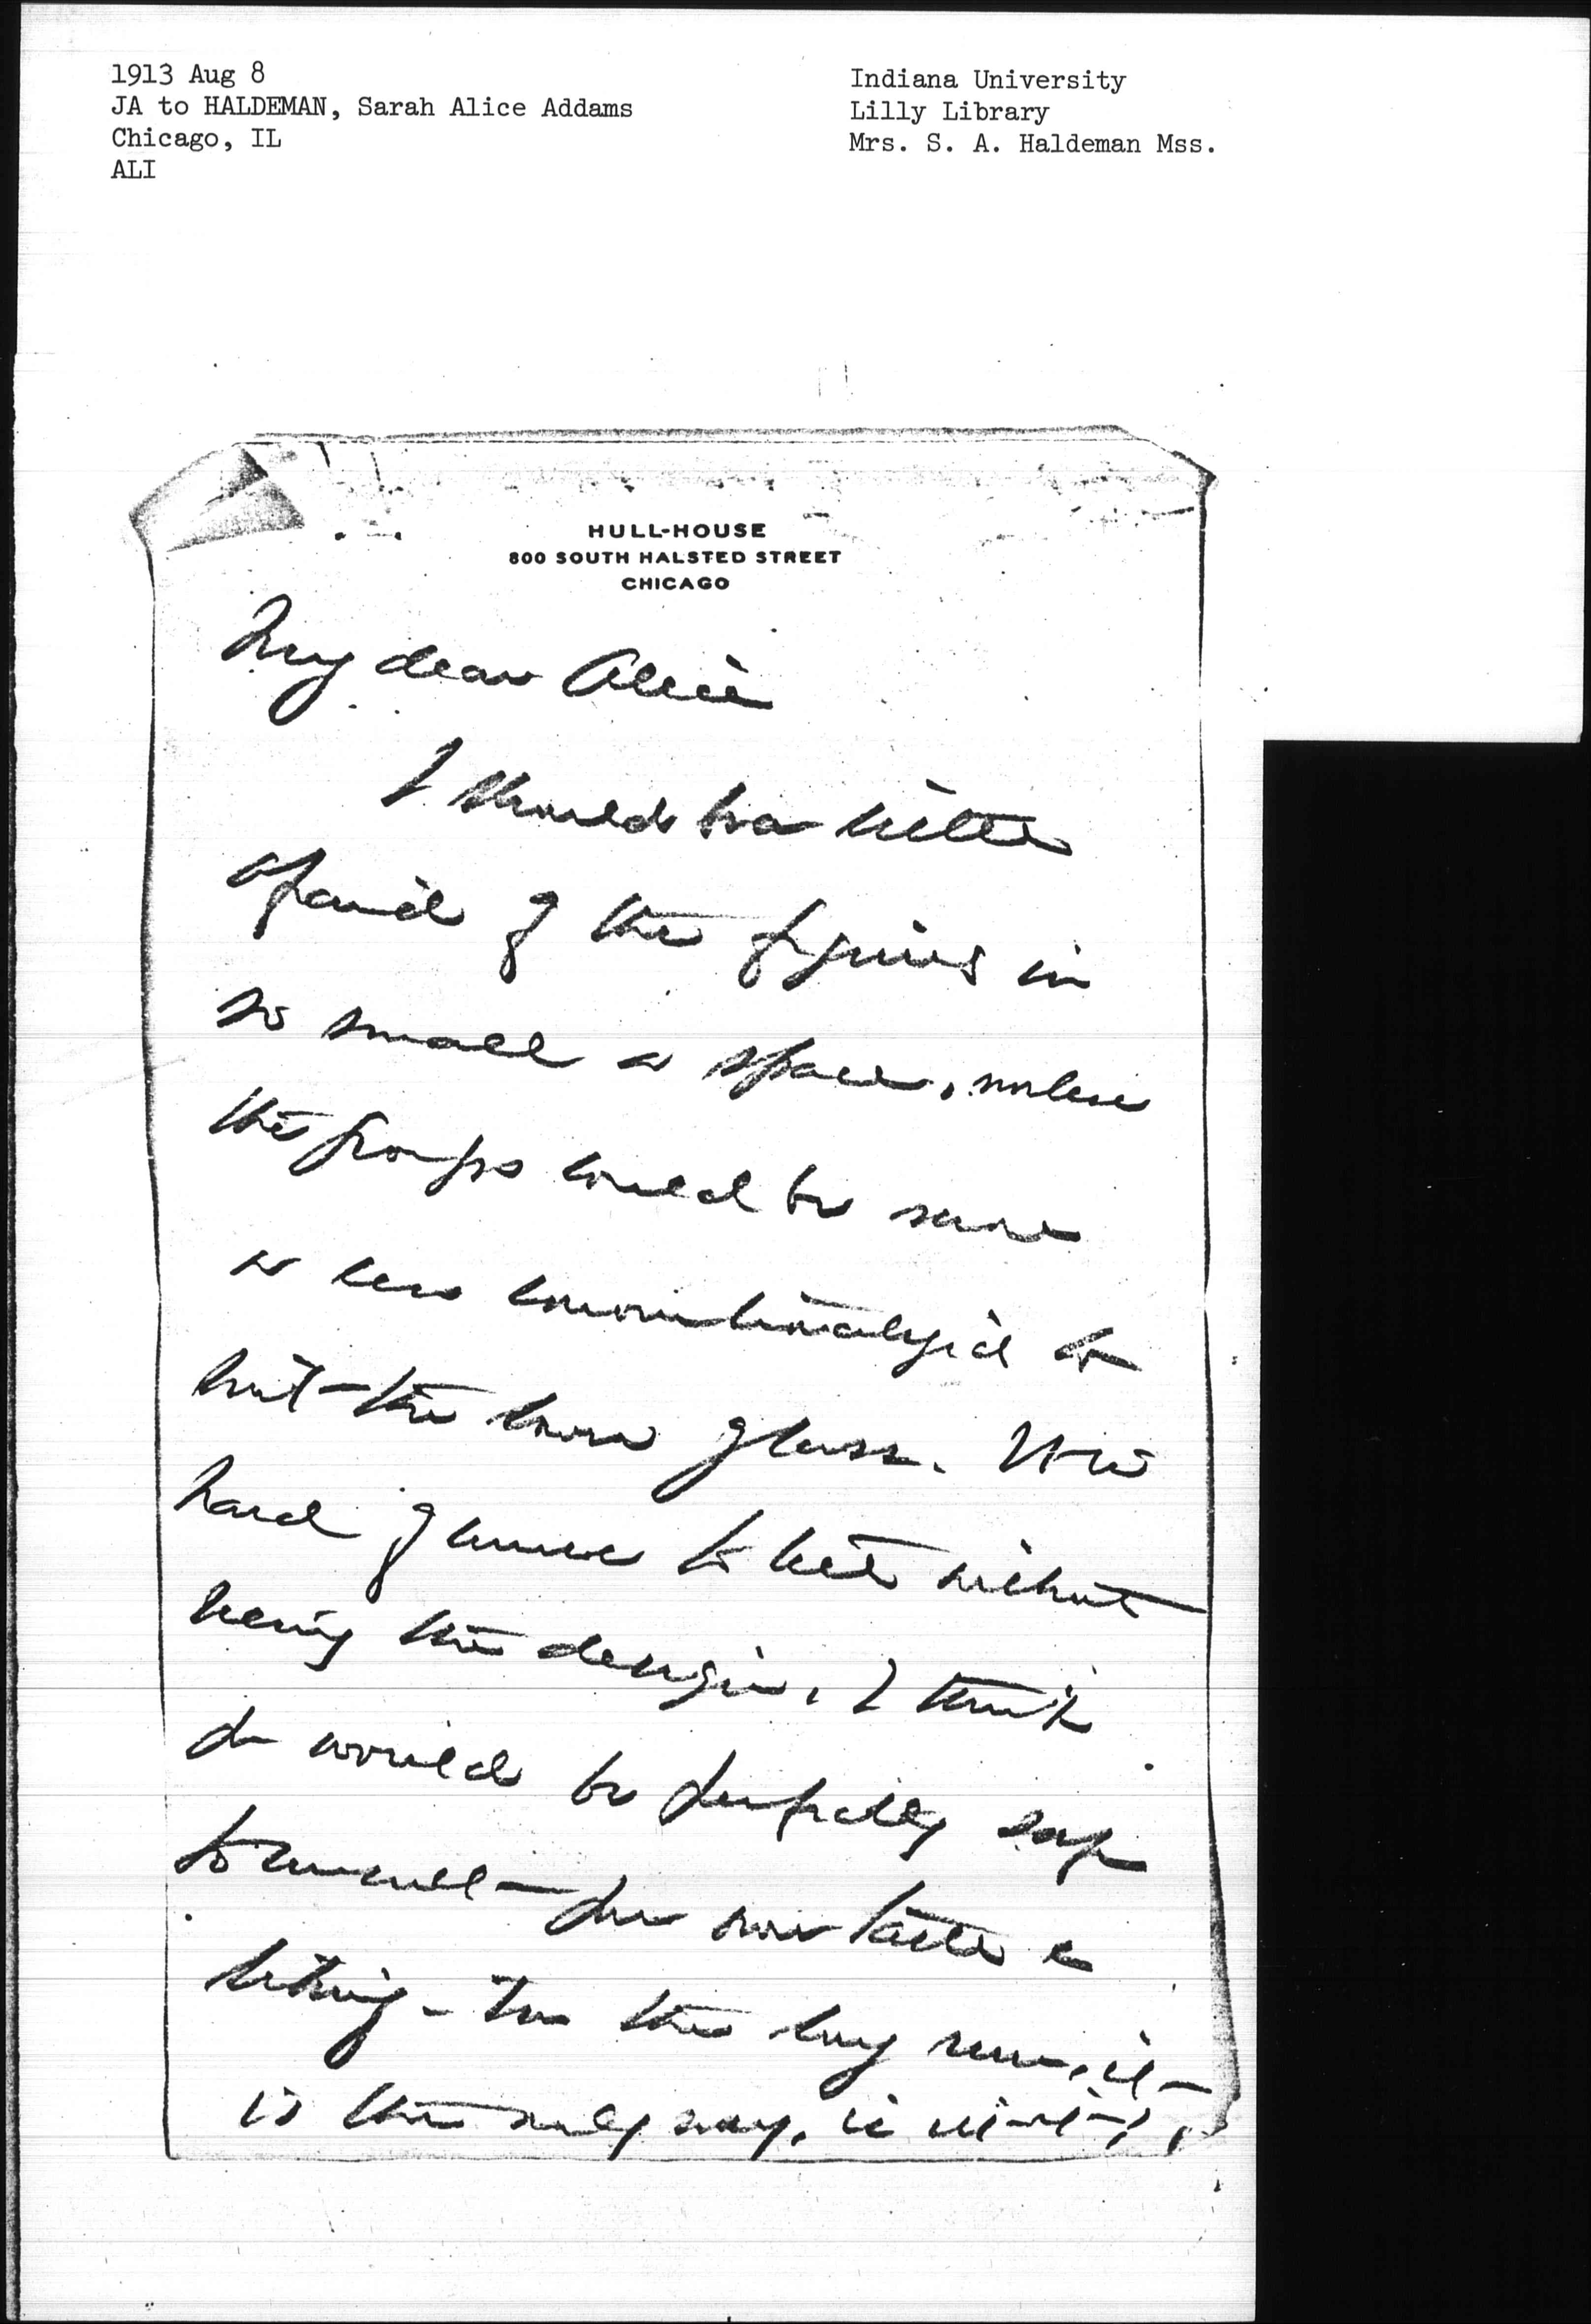 1913 Aug 8
JA to HALDEMAN, Sarah Alice Addams
Chicago, IL
ALI
Indiana University
Lilly Library
Mrs. S. A. Haldeman Mss.
HULL-HOUSE
800 SOUTH HALSTED STREET
CHICAGO
My dear Alice
I should be a little
afraid of the figures in
so small a space, unless
the groups could be more
or less conventionalized to
suit the glass. It is
hard of course to tell without
seeing the design, I think
I would be perfectly safe
to consult your own taste &
liking - In the long run, it
is the only way, is it not?